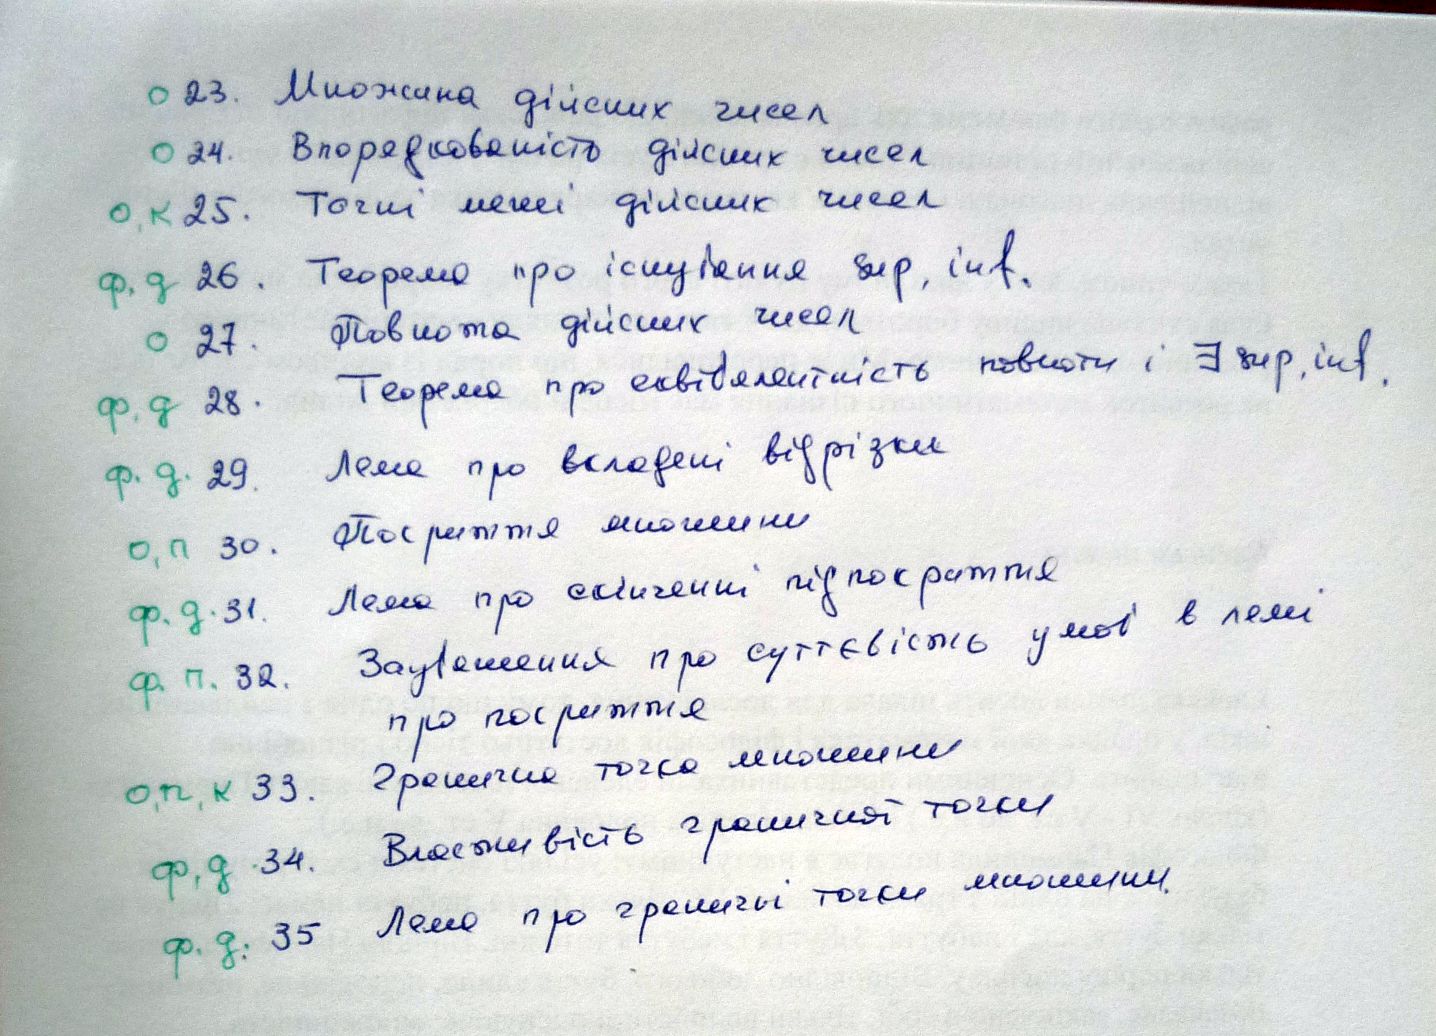 о 23. Множина дійсних чисел
о 24. Впорядкованість дійсних чисел
о, к 25. Точні межі дійсних чисел
ф, д 26. Теорема про існування sup, inf.
о 27. Повнота дійсних чисел
ф, д 28. Теорема про еквівалентність повноти і ∃ sup, inf.
ф. д. 29. Лема про вкладені відрізки
о, п 30. Покриття множини
ф. д. 31. Лема про скінченні підпокриття
ф. п. 32. Зауваження про суттєвість умов в лемі
про покриття
о, п, к 33. Гранична точка множини
ф, д 34. Властивість граничної точки
ф. д. 35 Лема про граничні точки множини.